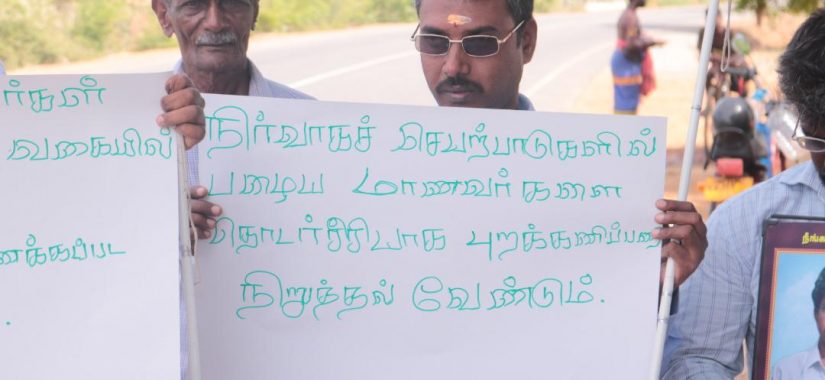 ர்கள்
வகையில்
ணக்கப்பட
.
நிர்வாகச் செயற்பாடுகளில்
பழைய மாணவர்களை
தொடர்ச்சியாக புறக்கணிப்பதை
நிறுத்தல் வேண்டும்.
நீங்க